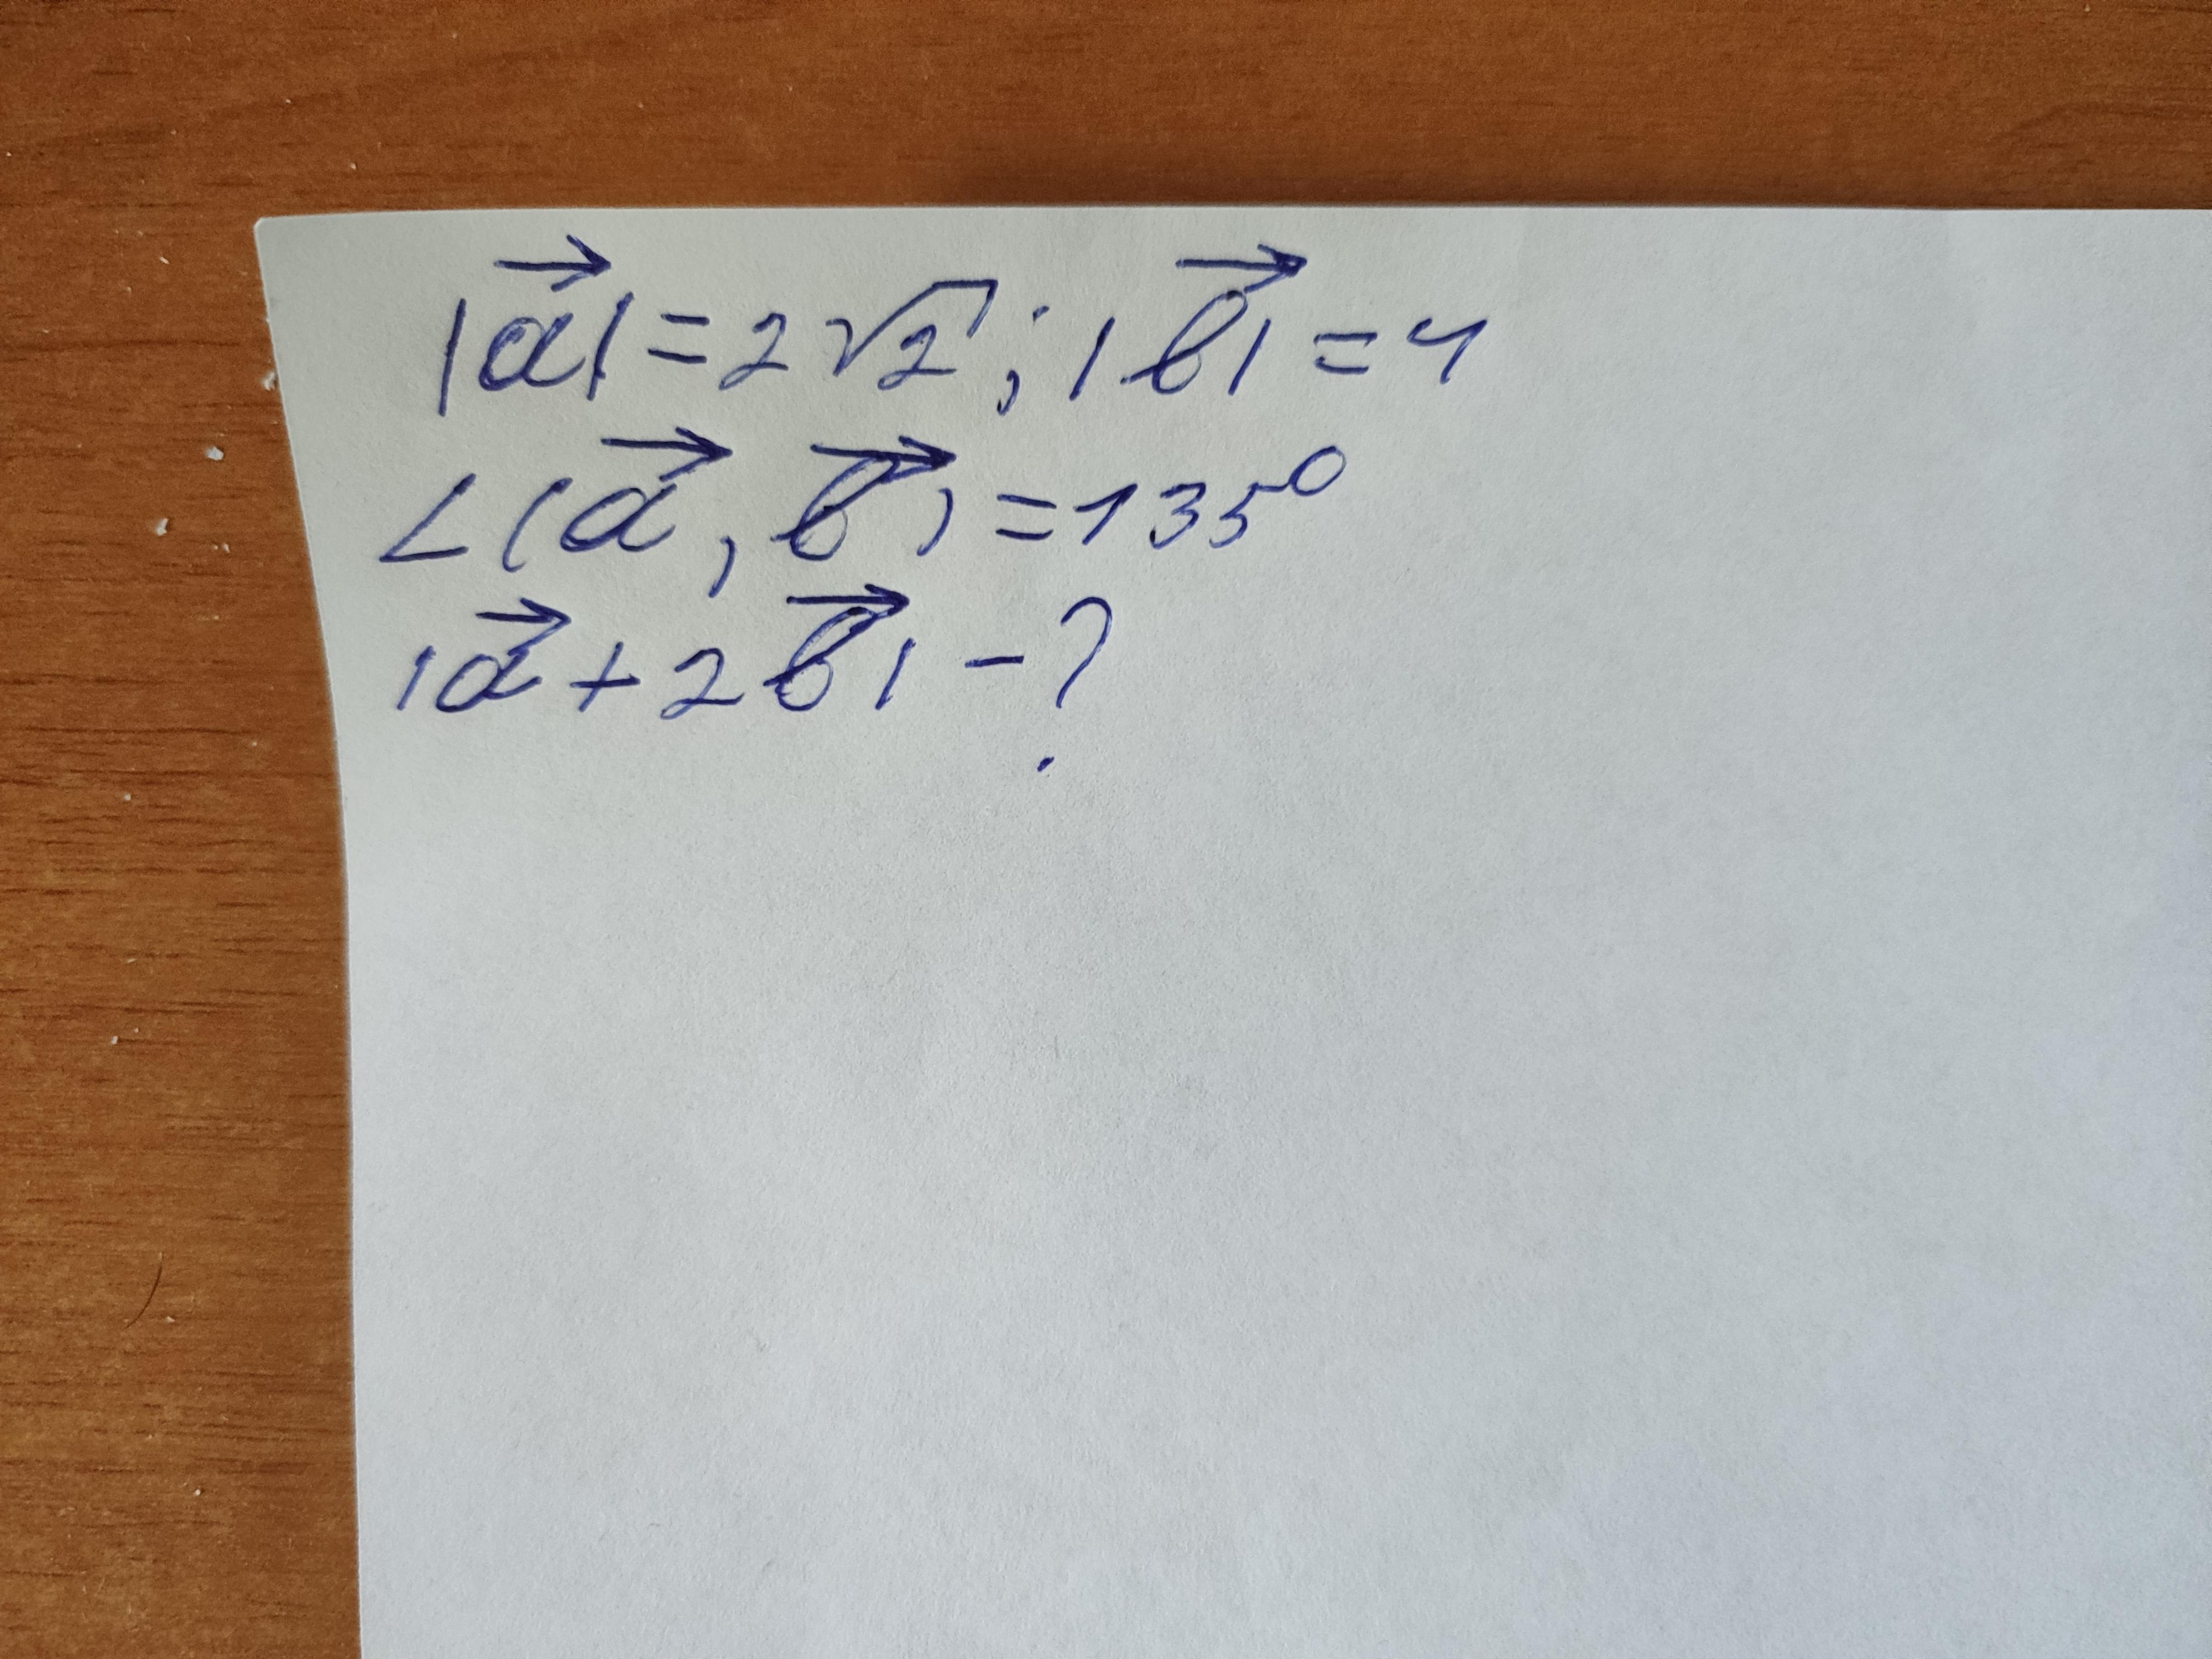 |a⃗| = 2√2; |b⃗| = 4
∠(a⃗, b⃗) = 135°
|a⃗ + 2b⃗| - ?